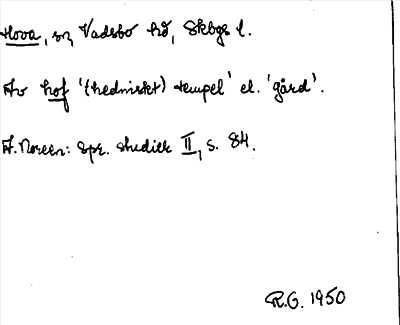 Hova, sn, Vadsbo hd, Skbgs l.
Av hof '(hedniskt) tempel' el. 'gård'.
A. Noreen: Spr. studier II, s. 84.
R.G. 1950